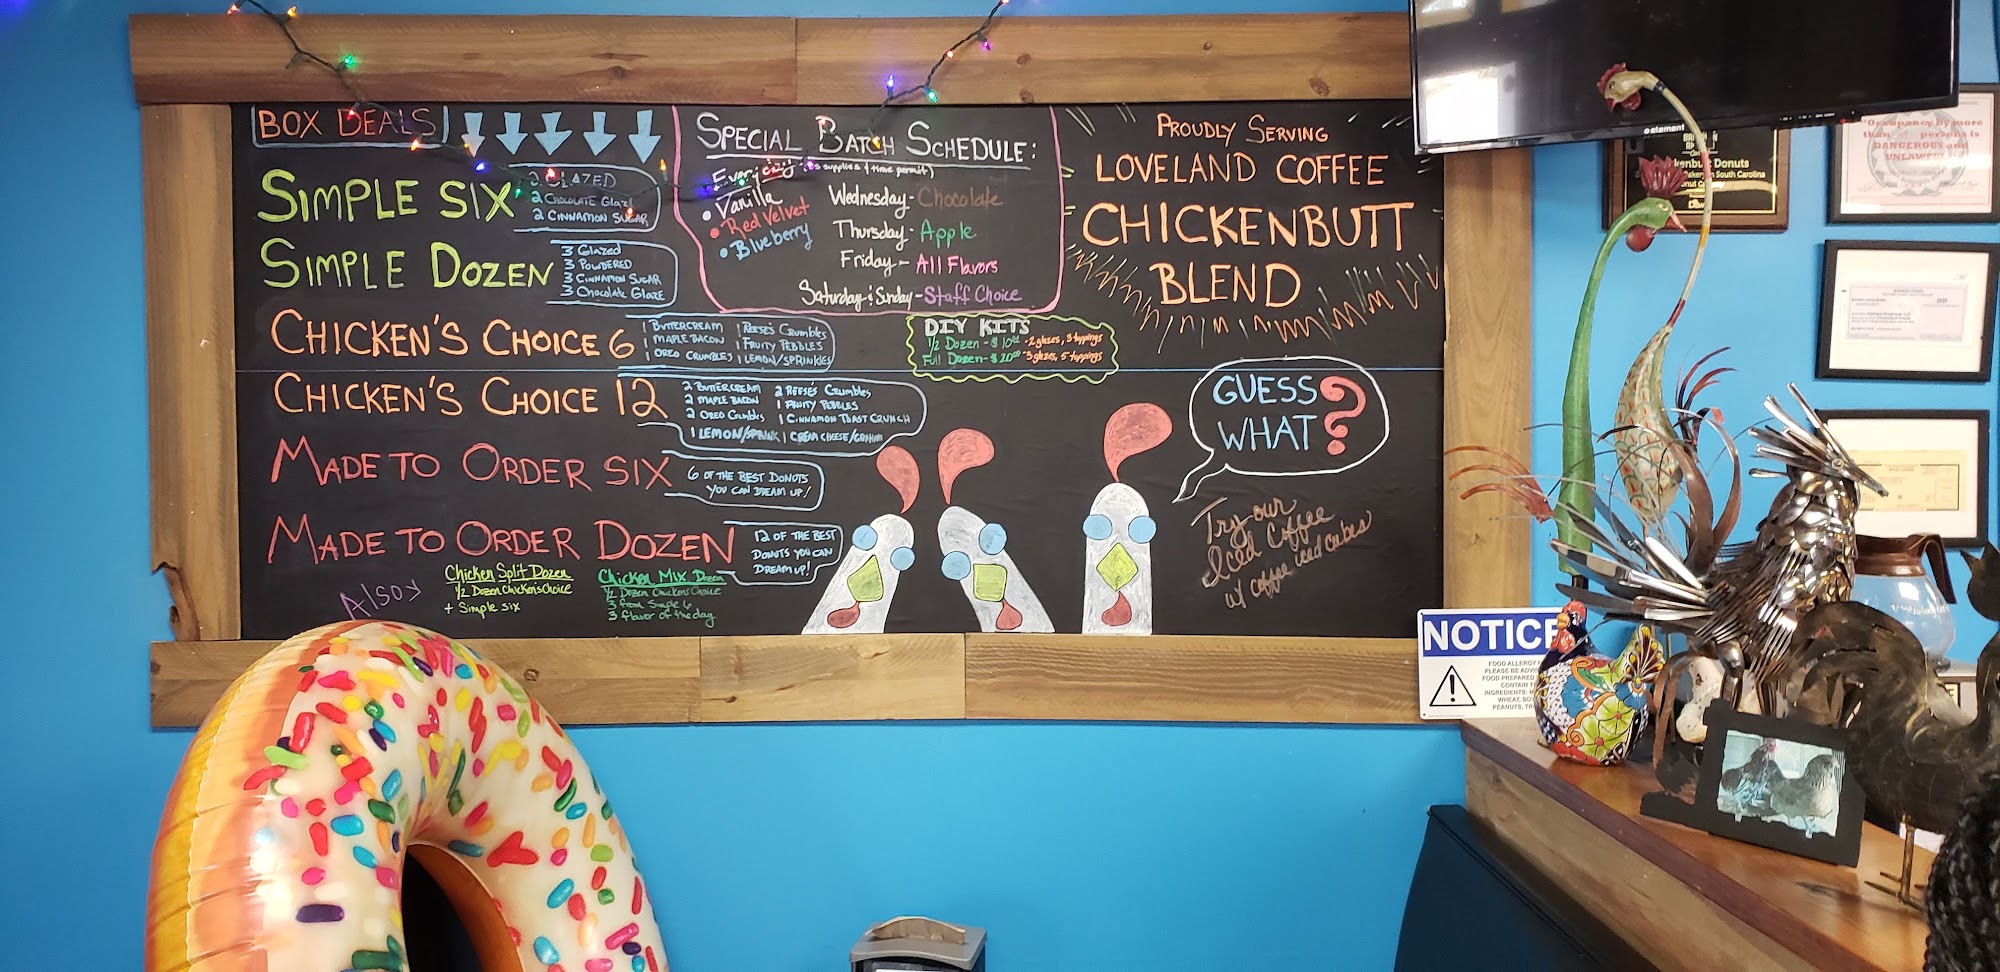 BOX DEALS
SIMPLE SIX
2 GLAZED
2 CHOCOLATE Glaze
2 CINNAMON SUGAR
SIMPLE DOZEN
3 Glazed
3 POWDERED
3 CINNAMON SUGAR
3 Chocolate GLAZE
CHICKEN'S CHOICE 6
1 BUTTERCREAM
1 MAPLE BACON
1 OREO CRUMBLES
1 REESE'S CRUMBLES
1 FRUITY PEBBLES
1 LEMON/SPRINKLES
CHICKEN'S CHOICE 12
2 BUTTERCREAM
2 MAPLE BACON
2 OREO CRUMBLES
2 REESE'S CRUMBLES
1 FRUITY PEBBLES
1 CINNAMON TOAST CRUNCH
1 LEMON/SPRINK
1 CREAM CHEESE/GRAHAM
MADE TO ORDER SIX
6 OF THE BEST DONUTS
YOU CAN DREAM UP!
MADE TO ORDER DOZEN
12 OF THE BEST
DONUTS YOU CAN
DREAM UP!
ALSO
Chicken Split Dozen
1/2 Dozen Chicken's Choice
+ Simple six
Chicken Mix Dozen
1/2 Dozen Chickens Choice
3 from Simple 6
3 flavor of the day
SPECIAL BATCH SCHEDULE:
Everyday (as supplies & time permit)
• Vanilla
• Red Velvet
• Blueberry
Wednesday - Chocolate
Thursday - Apple
Friday - All Flavors
Saturday & Sunday - Staff Choice
DIY KITS
1/2 Dozen - $10 - 2 glazes, 3 toppings
Full Dozen - $20 - 3 glazes, 5 toppings
PROUDLY SERVING
LOVELAND COFFEE
CHICKENBUTT
BLEND
GUESS
WHAT?
Try our
Iced Coffee
w/ coffee iced cubes
element
Donuts
South Carolina
"Occupancy by more
than persons is
DANGEROUS and
UNLAWFUL"
NOTICE
FOOD ALLERGY
PLEASE BE ADVIS
FOOD PREPARED
CONTAIN T
INGREDIENTS: M
WHEAT, SO
PEANUTS, TR